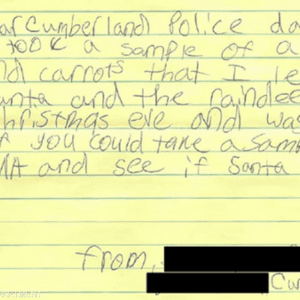 ar Cumberland Police da
took a sample of a
nd carrots that I le
anta and the raindee
christmas eve and was
f you could take a sam
NA and see if Santa
from,
Cu